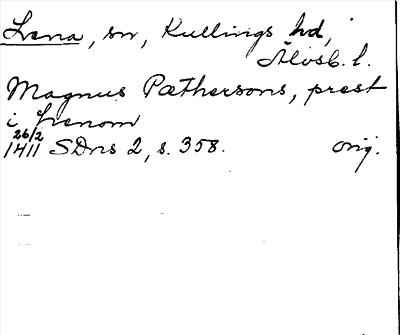 Lena, sn, Kullings hd,
Älvsb. l.
Magnus Pæthersons, prest
i Lænom
26/2
1411 SDns 2, s. 358. orig.